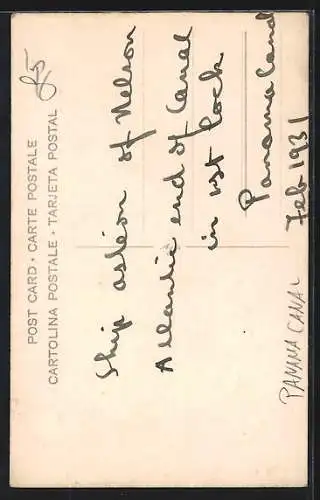 POST CARD · CARTE POSTALE
CARTOLINA POSTALE · TARJETA POSTAL
85
Ship astern of Nelson
Atlantic end of Canal
in 1st lock
Panama Canal
Feb 1931
PANAMA CANAL